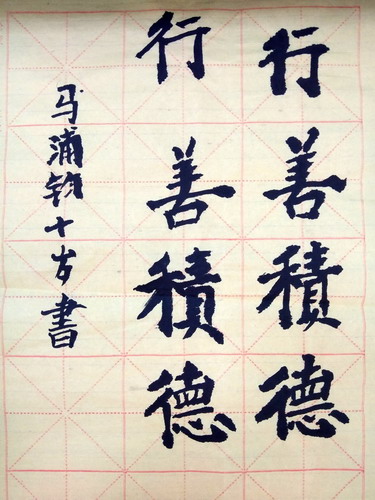 行善積德
行善積德
马浦钧十岁書